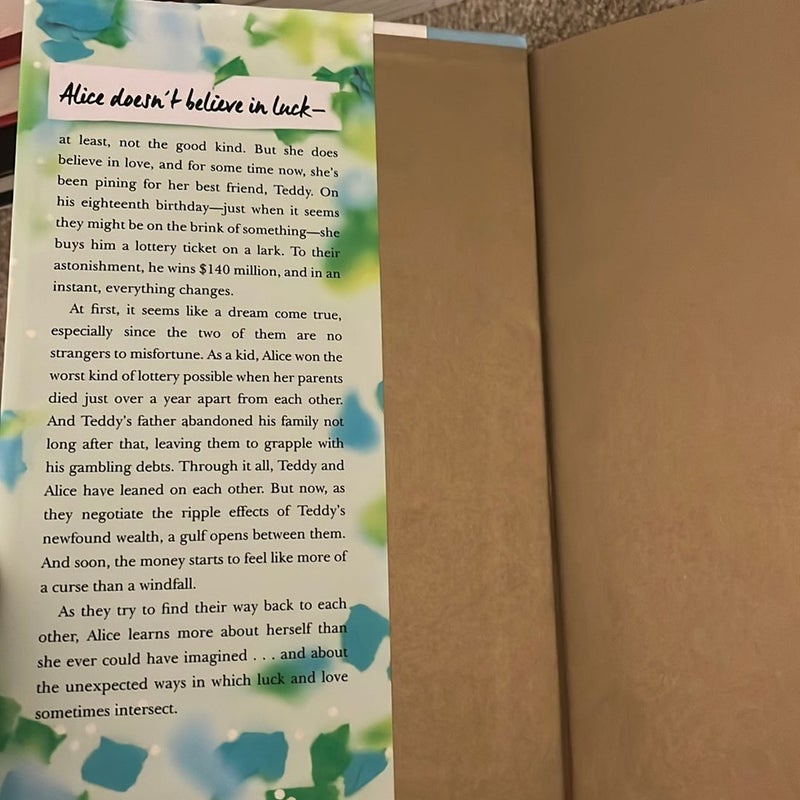 Alice doesn't believe in luck—
at least, not the good kind. But she does
believe in love, and for some time now, she's
been pining for her best friend, Teddy. On
his eighteenth birthday—just when it seems
they might be on the brink of something—she
buys him a lottery ticket on a lark. To their
astonishment, he wins $140 million, and in an
instant, everything changes.
At first, it seems like a dream come true,
especially since the two of them are no
strangers to misfortune. As a kid, Alice won the
worst kind of lottery possible when her parents
died just over a year apart from each other.
And Teddy's father abandoned his family not
long after that, leaving them to grapple with
his gambling debts. Through it all, Teddy and
Alice have leaned on each other. But now, as
they negotiate the ripple effects of Teddy's
newfound wealth, a gulf opens between them.
And soon, the money starts to feel like more of
a curse than a windfall.
As they try to find their way back to each
other, Alice learns more about herself than
she ever could have imagined . . . and about
the unexpected ways in which luck and love
sometimes intersect.